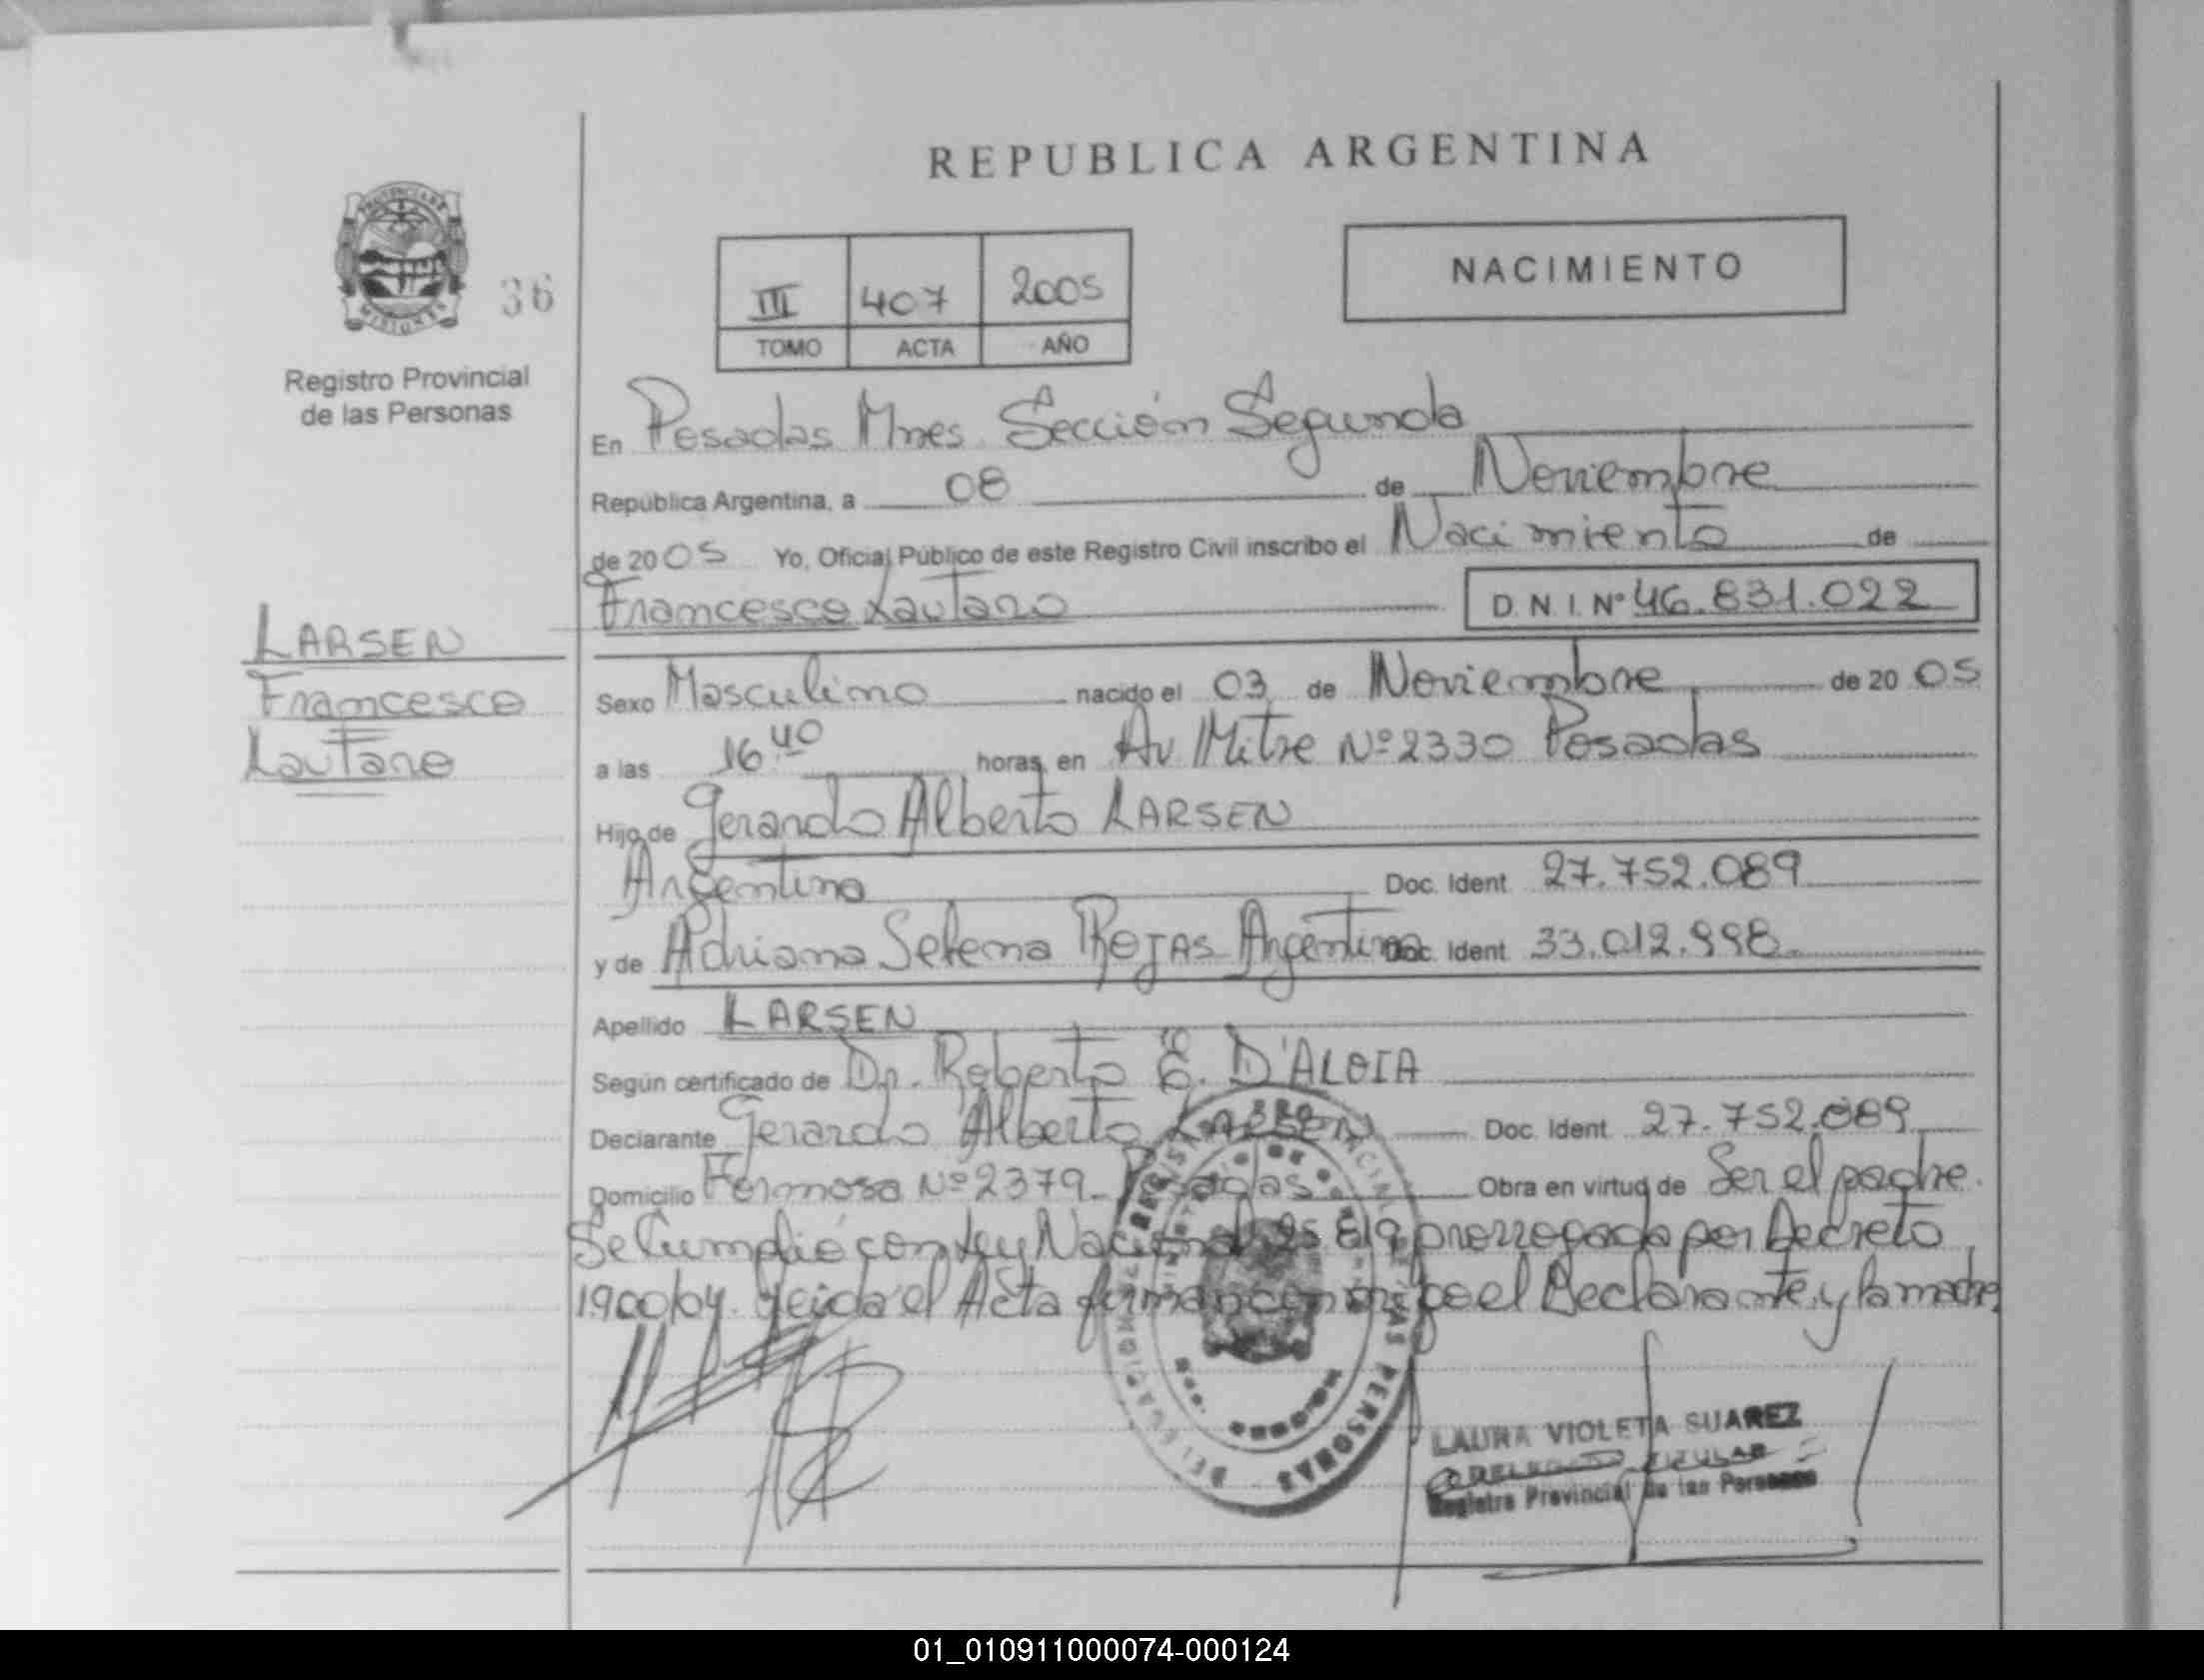 REPUBLICA ARGENTINA
PROVINCIA DE
MISIONES
36
Registro Provincial
de las Personas
III 407 2005
TOMO ACTA AÑO
NACIMIENTO
En Posadas Mnes Sección Segunda
República Argentina, a 08 de Noviembre
de 2005 Yo, Oficial Público de este Registro Civil inscribo el Nacimiento de
Francesco Lautaro D.N.I. Nº 46.831.022
LARSEN
Francesco
Lautaro
Sexo Masculino nacido el 03 de Noviembre de 2005
a las 16.40 horas en Av Mitre Nº 2330 Posadas
Hijo de Gerardo Alberto LARSEN
Argentino Doc. Ident 27.752.089
y de Adriana Selena ROJAS Argentina Doc. Ident 33.012.998
Apellido LARSEN
Según certificado de Dr. Roberto E. D'ALOIA
Declarante Gerardo Alberto LARSEN Doc. Ident 27.752.089
Domicilio Formosa Nº 2379 Posadas Obra en virtud de Ser el padre.
Se Cumplió con Ley Nacional 25 819 prorrogada por Decreto
1900/04. Leída el Acta firman conmigo el Declarante y la madre
PERSONAS
LAURA VIOLETA SUAREZ
TITULAR
Registro Provincial de las Personas
01_010911000074-000124